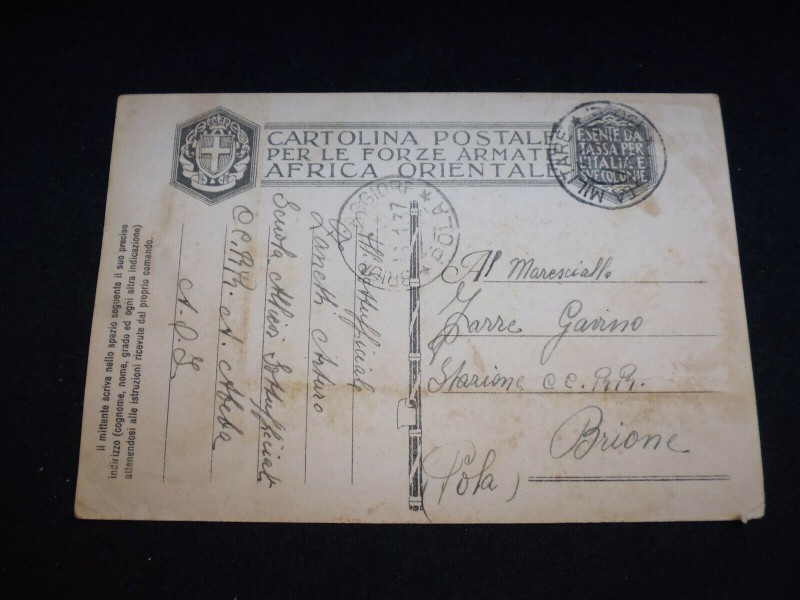 CARTOLINA POSTALE
PER LE FORZE ARMATE
AFRICA ORIENTALE
ESENTE DA
TASSA PER
L'ITALIA E
SUE COLONIE
MILITARE
POLA
MAGGIORE
BRIONI
Al Maresciallo
Zarre Gavino
Stazione CC.RR.
Brione
(Pola)
Al Sottufficiale
Arturo
Scuola Allievi Sottufficiali
CC.RR. A. Abeba
A.O.I.
Il mittente scriva nello spazio seguente il suo preciso
indirizzo (cognome, nome, grado ed ogni altra indicazione)
attenendosi alle istruzioni ricevute dal proprio comando.